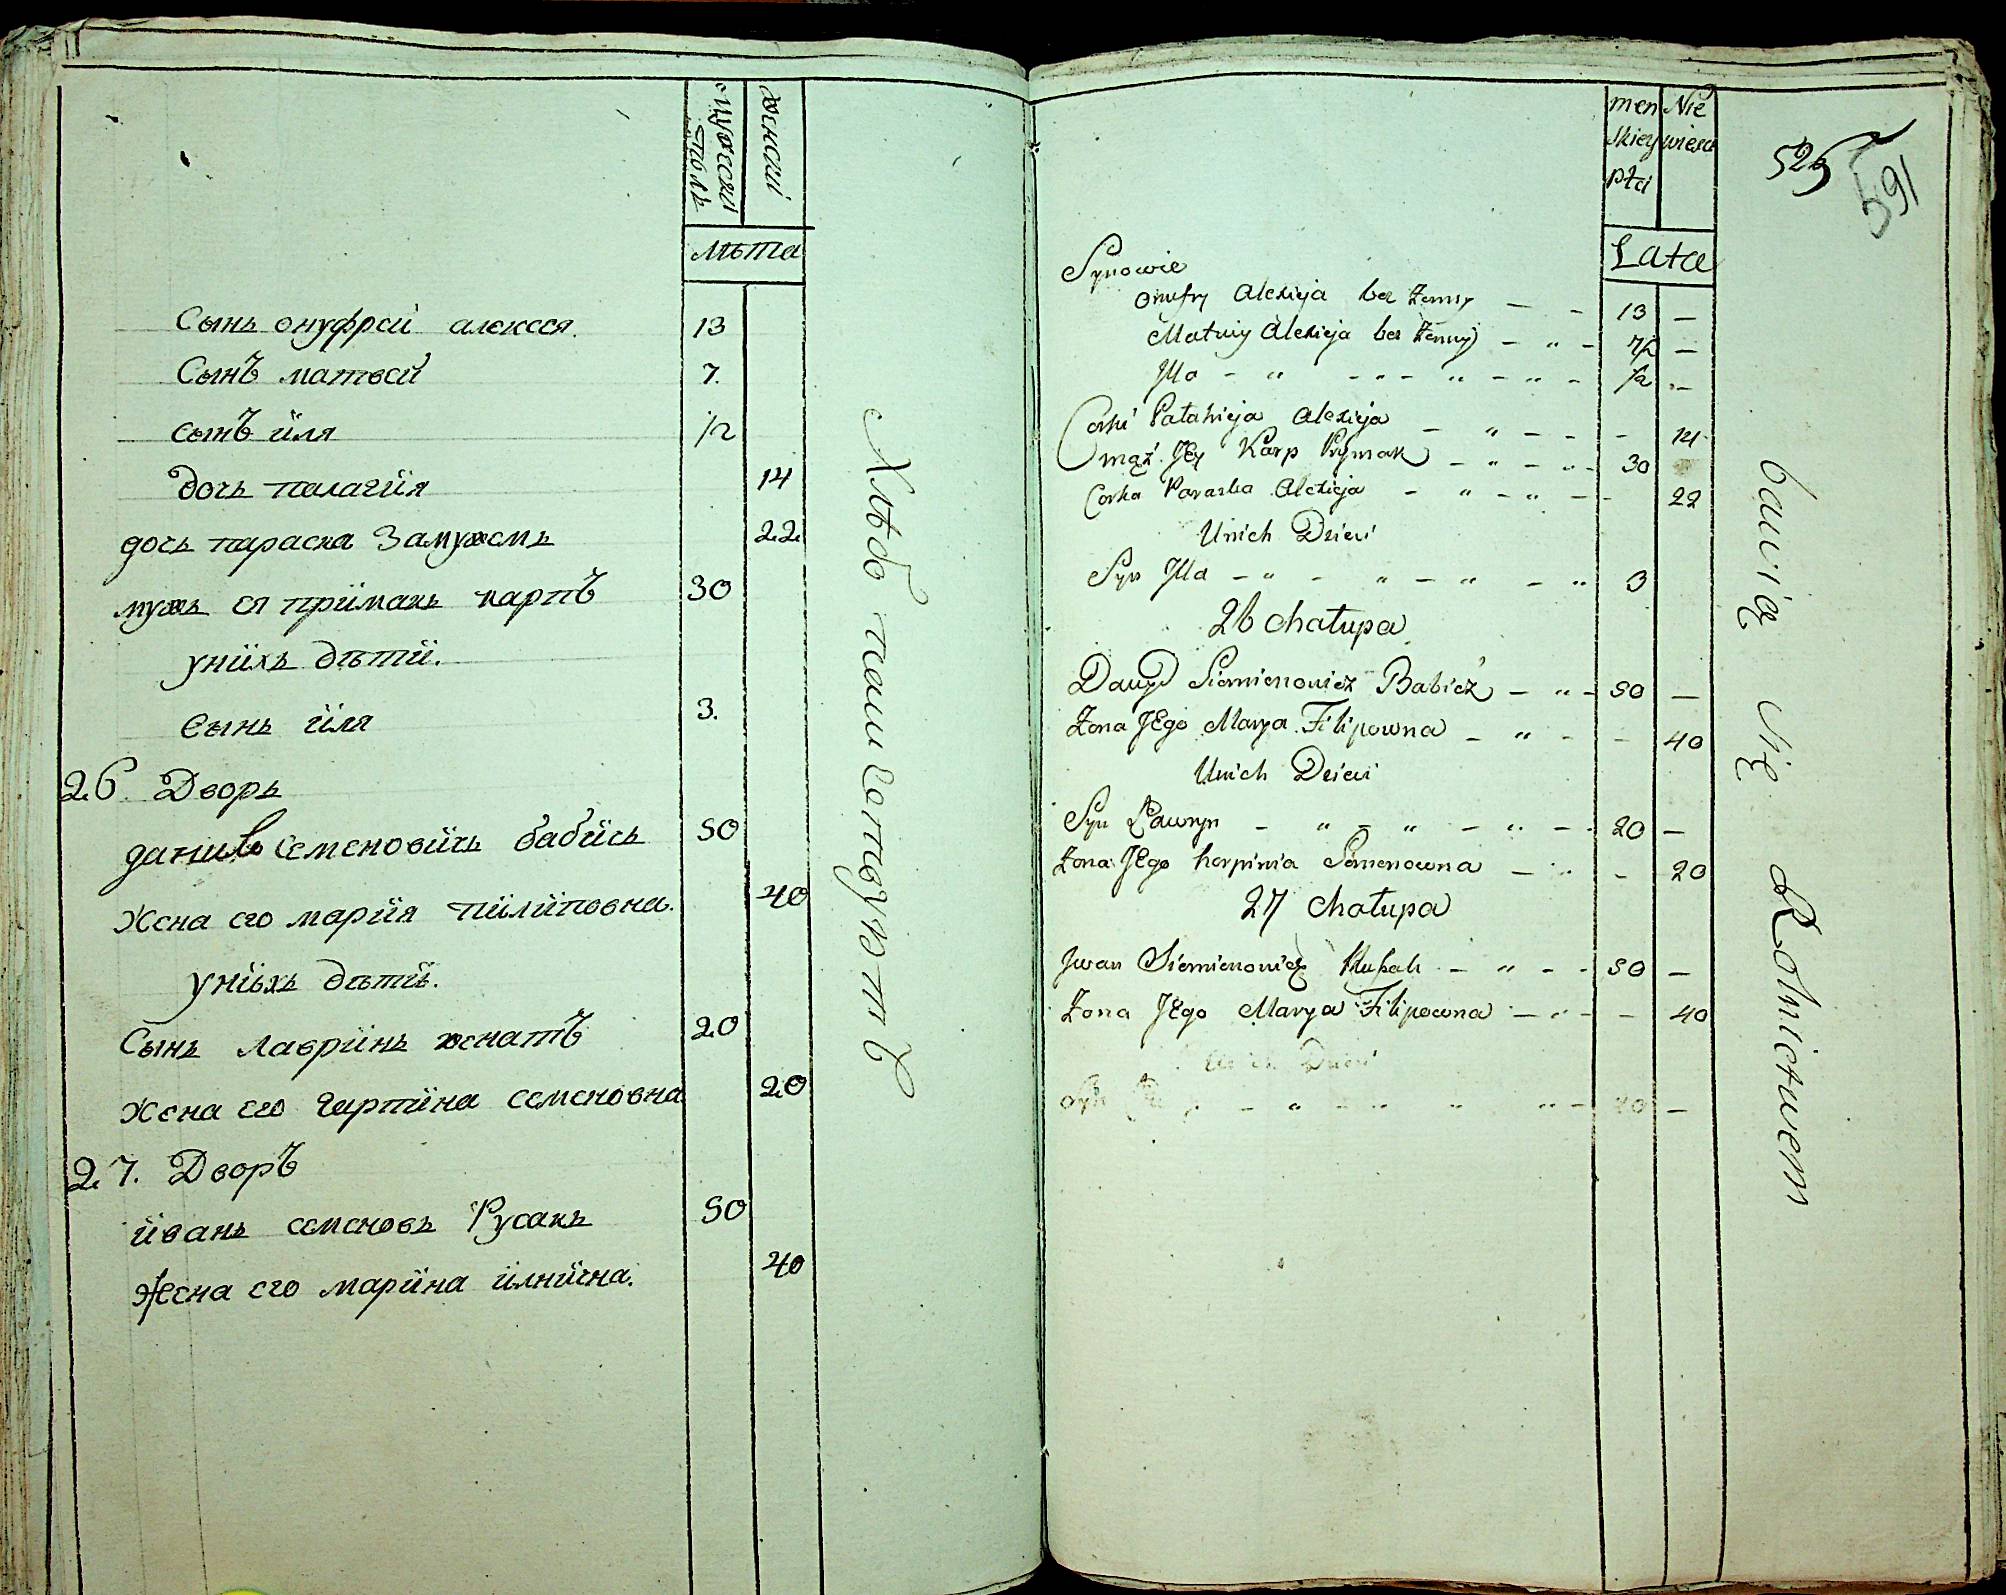 мужески полъ
женский
лѣта
Сынъ онуфрей алексея. 13
Сынъ матвей 7.
сынъ ӥля 1/2
дочь палагӥя 14
дочь параска Замужемъ 22
мужъ ея прӥмакъ карпъ 30
унӥхъ дѣтӥ.
Сынъ ӥля 3.
26 Дворъ
данило Семеновӥчь бабӥчь 50
Жена его марӥя пӥлӥповна. 40
унӥхъ дѣтӥ.
Сынъ лаврӥнъ женатъ 20
Жена его гарпӥна семеновна 20
27. Дворъ
ӥванъ семеновъ Русакъ 50
Жена его марӥна ӥлнӥчна. 40
Хлѣбопашествуютъ
men Nie
skiey wiesc
płci
Lata
525
591
Synowie
Onufry Alexieja bez żenny — - 13 —
Matwiy Alexieja bez żenny — " - 7/2 —
Jlla - " - " - " - " - 1/2 " -
Corki Pałahieja Alexieja — " — - - 14
mąż Jey Karp Prymak — " — " - 30
Corka Paraska Alexieja - " - " - - 22
Unich Dzieci
Syn Jlla - " - " - " - " 3
26 chałupa
Dawyd Siemienowicz Babicz — " - 50 —
Żona JEgo Marya Filipowna — " - - 40
Unich Dzieci
Syn Ławryn - " - " - " - 20 —
Żona JEgo horpinia Semenowna — " - 20
27 chałupa
Jwan Siemienowicz - " - - 50 —
Żona JEgo Marya Filipowna — " - - 40
Unich Dzieci
Syn - " - " " " - 20 —
bawią się Rolnictwem